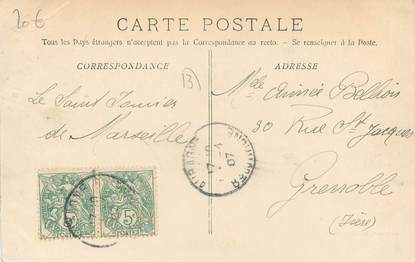 20€
CARTE POSTALE
Tous les Pays étrangers n'acceptent pas la Correspondance au recto. — Se renseigner à la Poste.
CORRESPONDANCE
ADRESSE
13
Le Saint Janvier
de Marseille
Melle Aimée
30 Rue St Jacques
Grenoble
(Isère)
17-4
07
5c